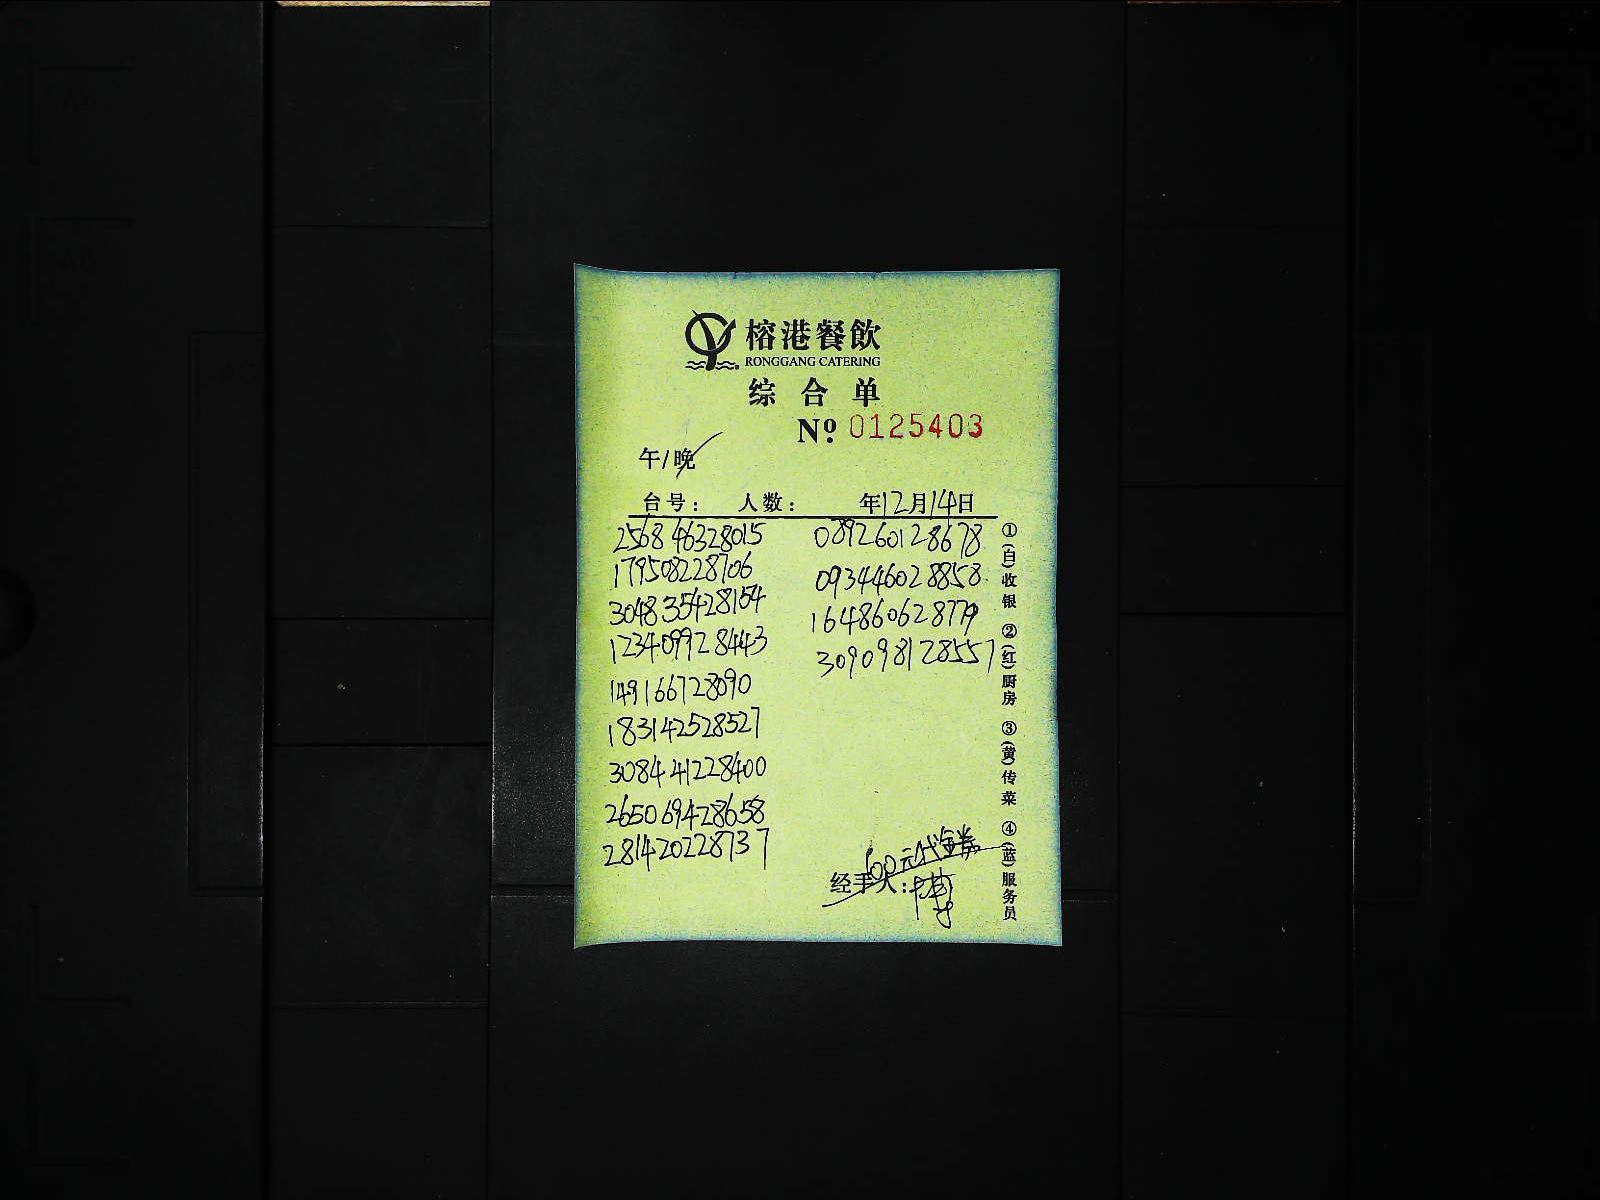 榕港餐飲
RONGGANG CATERING
综合单
Nº 0125403
午/晚
台号: 人数: 年12月14日
256846328015
179508228706
304835428154
123409928443
149166728090
183142528527
308441228400
265069428658
281420228737
089260128678
093446028858
164860628779
309098128557
100元代金券
经手人:
①(白)收银 ②(红)厨房 ③(黄)传菜 ④(蓝)服务员